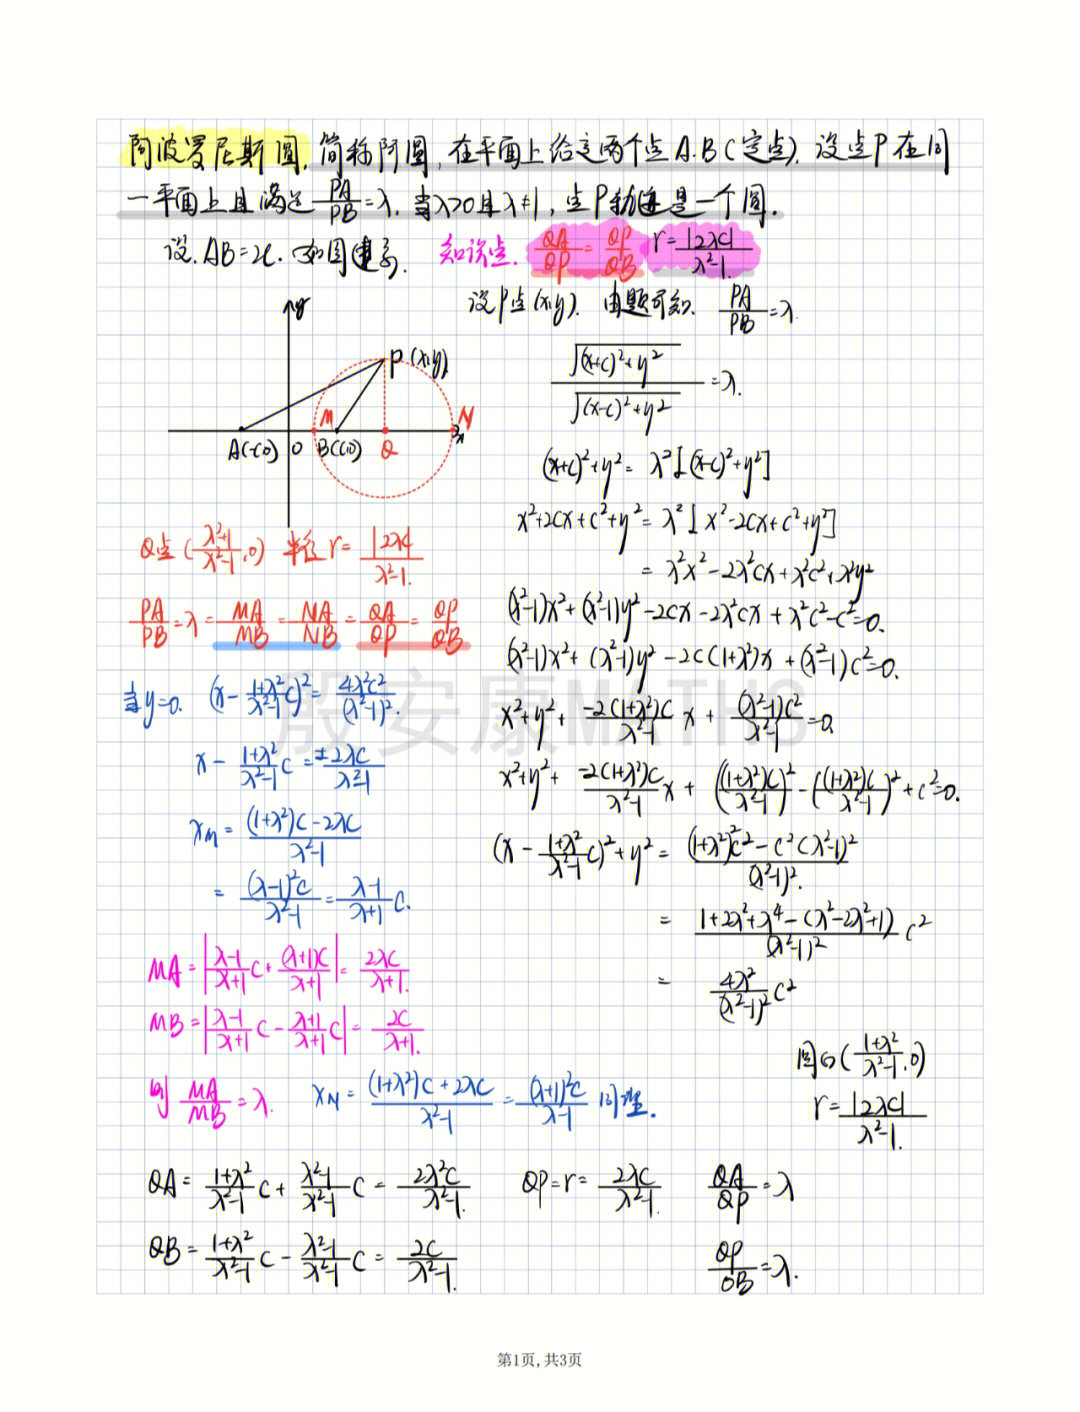 阿波罗尼斯圆,简称阿圆,在平面上给定两个点A.B(定点),设点P在同
一平面上且满足 PA/PB=λ,当λ>0且λ≠1,点P轨迹是一个圆.
设.AB=2c.如图建系. 知识点. QA/QP=QP/QB r=|2λc|/λ²-1.
设P点(x,y). 由题可知. PA/PB=λ
y
P(x,y)
M N
A(-c,0) O B(c,0) Q x
√(x+c)²+y²/√(x-c)²+y²=λ.
(x+c)²+y²=λ²[(x-c)²+y²]
x²+2cx+c²+y²=λ²[x²-2cx+c²+y²]
=λ²x²-2λ²cx+λ²c²+λ²y²
(λ²-1)x²+(λ²-1)y²-2cx-2λ²cx+λ²c²-c²=0.
(λ²-1)x²+(λ²-1)y²-2c(1+λ²)x+(λ²-1)c²=0.
x²+y²+ -2(1+λ²)c/λ²-1 x+ (λ²-1)c²/λ²-1=0
x²+y²+ -2(1+λ²)c/λ²-1 x+((1+λ²)c/λ²-1)²-((1+λ²)c/λ²-1)²+c²=0.
(x-1+λ²/λ²-1 c)²+y²=(1+λ²)²c²-c²(λ²-1)²/(λ²-1)².
=1+2λ²+λ⁴-(λ²-2λ²+1)/(λ²-1)² c²
=4λ²/(λ²-1)² c²
圆心(1+λ²/λ²-1,0)
r=|2λc|/λ²-1.
Q点(λ²+1/λ²-1,0) 半径r=|2λc|/λ²-1.
PA/PB=λ=MA/MB=NA/NB=QA/QP=QP/QB
当y=0. (x-1+λ²/λ²-1 c)²=4λ²c²/(λ²-1)².
x-1+λ²/λ²-1 c=±2λc/λ²-1
xM=(1+λ²)c-2λc/λ²-1
=(λ-1)²c/λ²-1=λ-1/λ+1 c.
MA=|λ-1/λ+1 c+(λ+1)c/λ+1|=2λc/λ+1.
MB=|λ-1/λ+1 c-λ+1/λ+1 c|=2c/λ+1.
则 MA/MB=λ. xN=(1+λ²)c+2λc/λ²-1=(λ+1)²c/λ-1 同理.
QA=1+λ²/λ²-1 c+λ²-1/λ²-1 c=2λ²c/λ²-1. QP=r=2λc/λ²-1. QA/QP=λ
QB=1+λ²/λ²-1 c-λ²-1/λ²-1 c=2c/λ²-1. QP/QB=λ.
殷安康MATHS
第1页,共3页